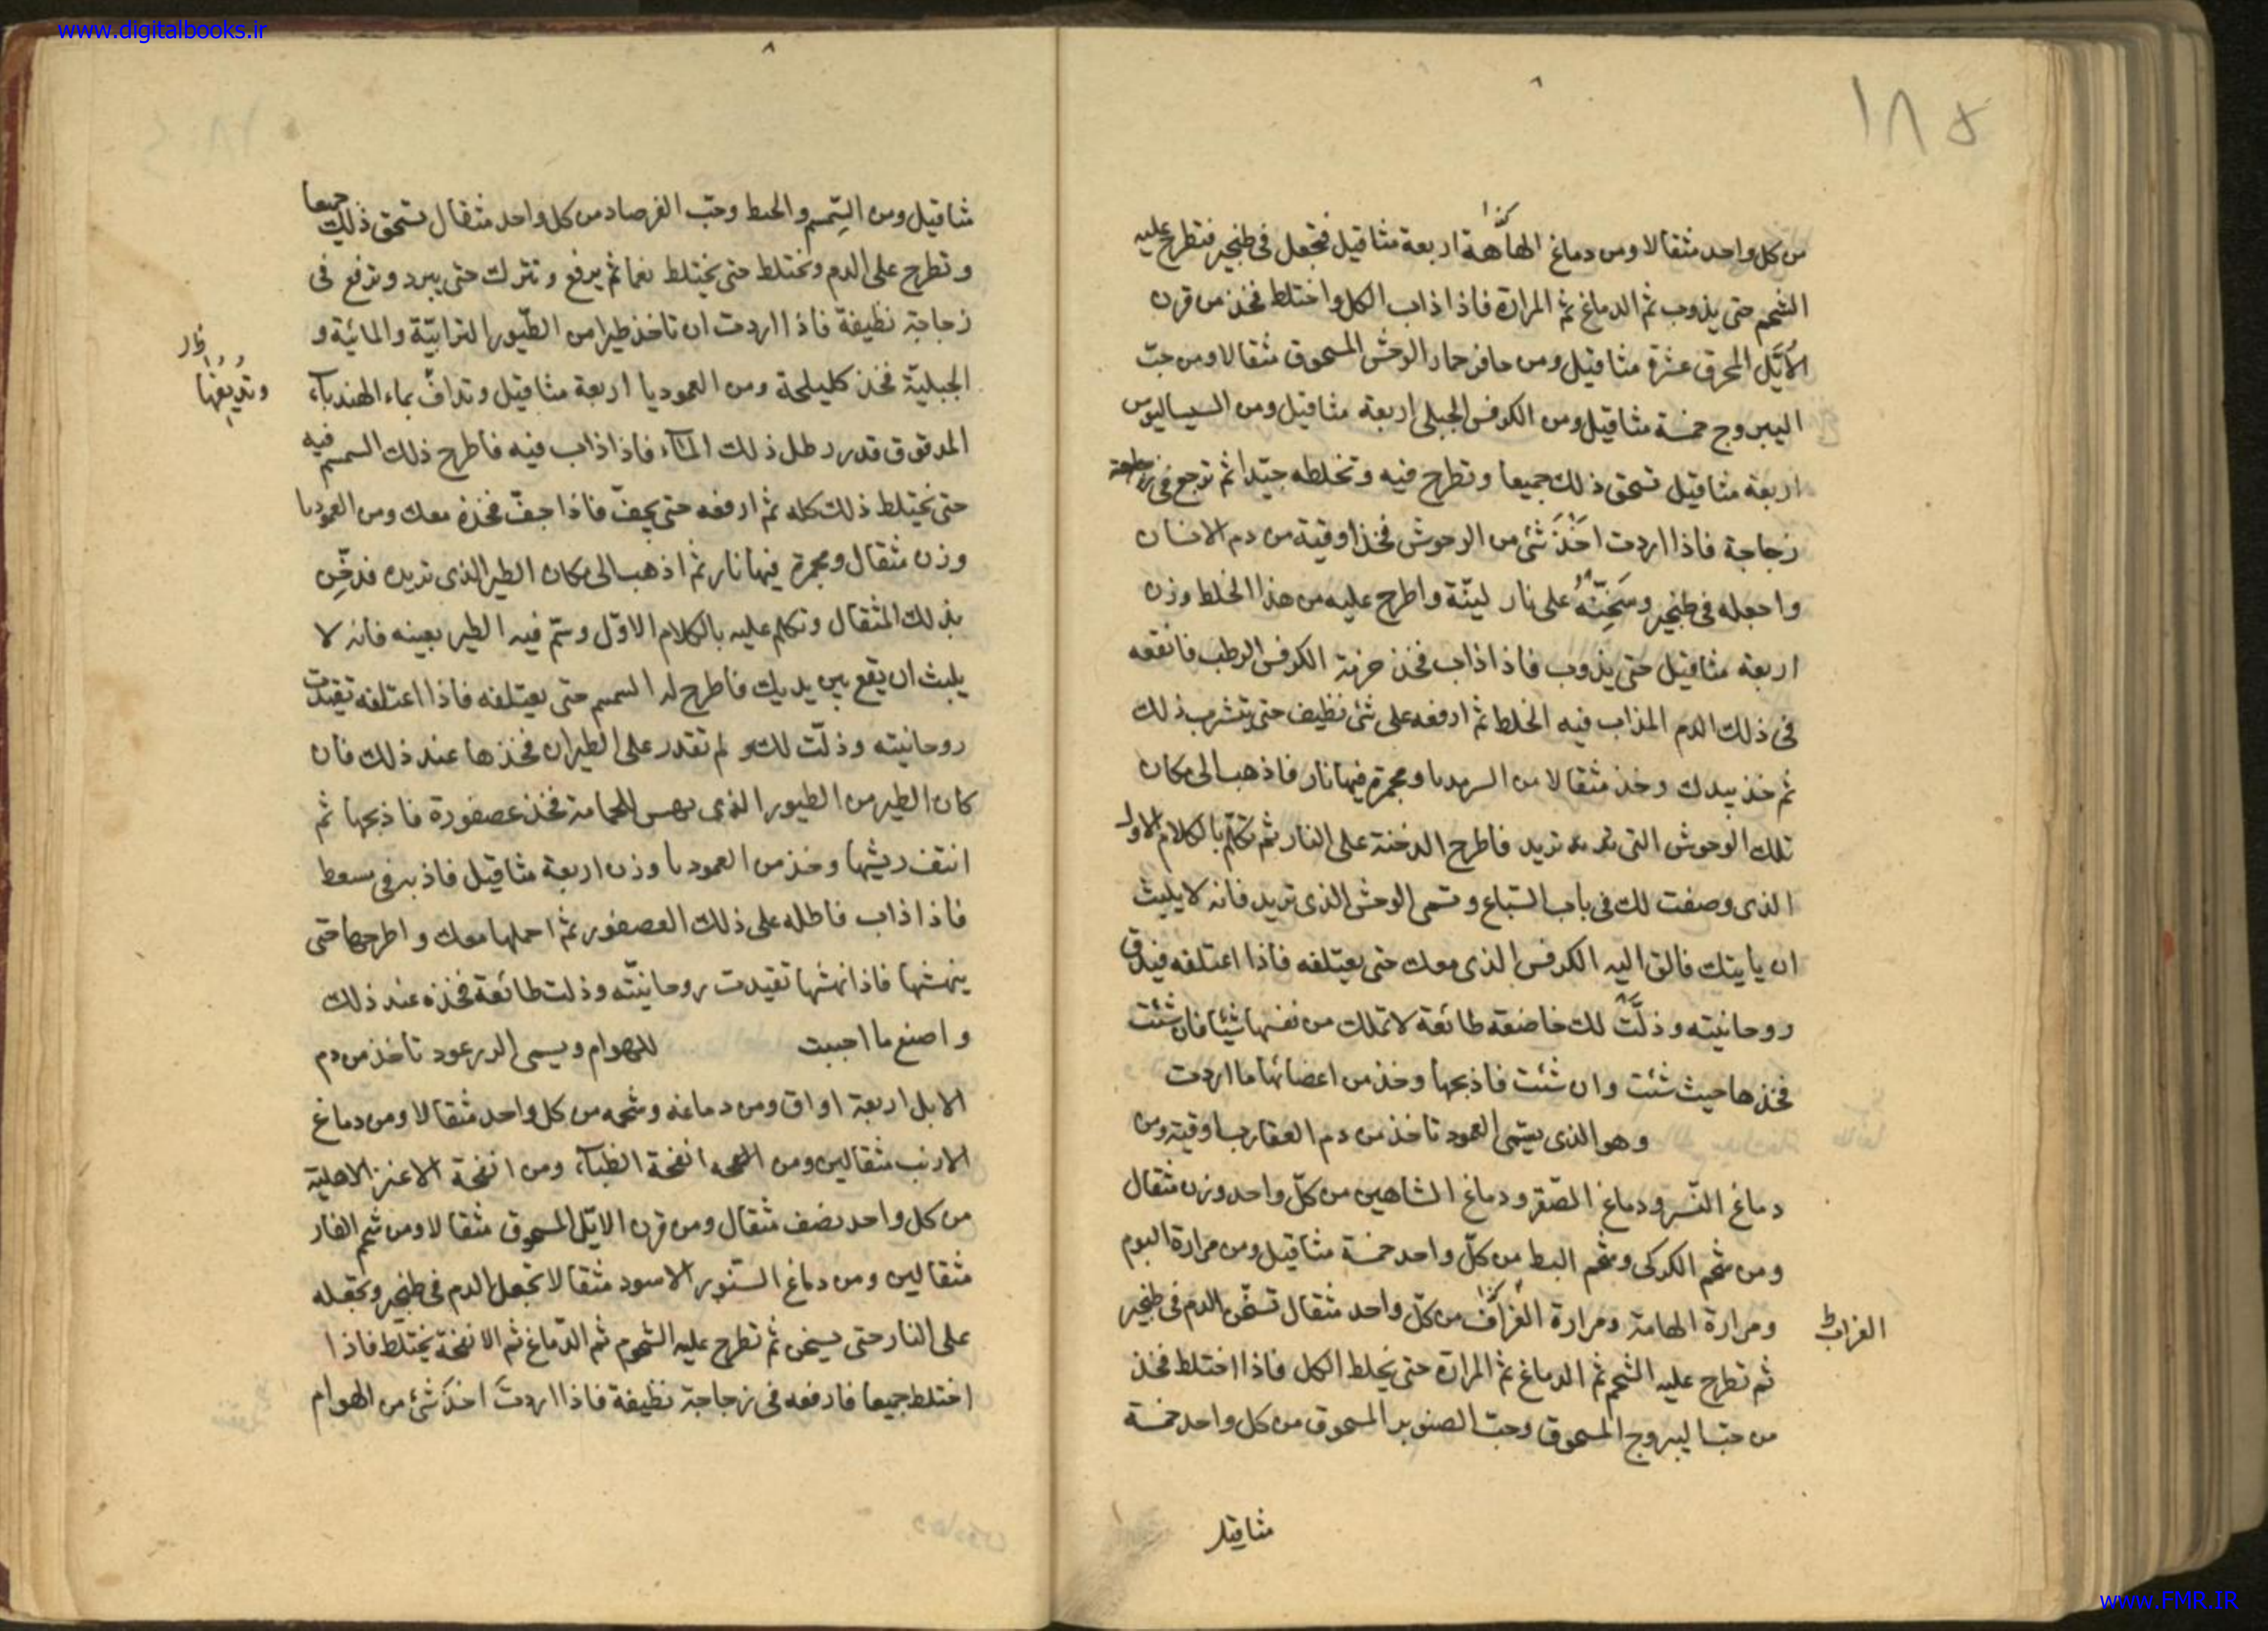 www.digitalbooks.ir
١٨٥
كذا
من كل واحد مثقالا ومن دماغ الهامهة اربعة مثاقيل فتجعل فى طنجير فتطرح عليه
الشحم حتى يذوب ثم الدماغ ثم المرارة فاذا ذاب الكل واختلط فخذ من قرن
الأيّل المحرق عشرة مثاقيل ومن حافر حمار الوحش المسحوق مثقالا ومن حبّ
اليبروج خمسة مثاقيل ومن الكرفس الجبلى اربعة مثاقيل ومن السيساليوس
اربعة مثاقيل تسحق ذلك جميعا وتطرح فيه وتخلطه جيّدا ثم ترجع فى
زجاجة فاذا اردت اخذ شئ من الوحوش فخذ اوقية من دم الانسان
واجعله فى طنجير وسخّنه على نار لينّة واطرح عليه من هذا الخلط وزن
اربعة مثاقيل حتى يذوب فاذا ذاب فخذ حزمة الكرفس الرطب فانقعه
فى ذلك الدم المذاب فيه الخلط ثم ارفعه على شئ نظيف حتى يتشرب ذلك
ثم خذ بيدك وخذ مثقالا من ومجمرة فيها نار فاذهب الى مكان
تلك الوحوش التى تريد فاطرح الدخنة على النار ثم تكلّم بالكلام الاول
الذى وصفت لك فى باب السّباع وتسمى الوحش الذى تريد فانه لا يلبث
ان يايتك فالق اليه الكرفس الذى معك حتى يعتلفه فاذا اعتلفه
روحانيته وذلّت لك خاضعة طائعة لا تملك من نفسها شيئا فان شئت
فخذها حيث شئت وان شئت فاذبحها وخذ من اعضائها ما اردت
وهو الذى يسمّى العمود تاخذ من دم العقارب اوقية ومن
دماغ النّسر ودماغ الصّقر ودماغ الشاهين من كلّ واحد وزن مثقال
ومن شحم الكركى وشحم البط من كلّ واحد خمسة مثاقيل ومن مرارة البوم
كذا
ومرارة الهامة ومرارة الغراف من كلّ واحد مثقال تسخّن الدم فى طنجير
الغراب ط
ثم تطرح عليه الشحم ثم الدماغ ثم المرارة حتى يختلط الكل فاذا اختلط فخذ
من حبّ اليبروج المسحوق وحبّ الصنوبر المسحوق من كل واحد خمسة
مثاقيل
مثاقيل ومن السّمسم والحنط وحبّ الفرصاد من كل واحد مثقال تسحق ذلك جميعا
وتطرح على الدم وتختلط حتى يختلط نعما ثم يرفع وتترك حتى يبرد وترفع فى
زجاجة نظيفة فاذا اردت ان تاخذ طيرا من الطّيور الترابيّة والمائية و
الجبليّة فخذ كليلجة ومن العموديا اربعة مثاقيل وتداف بماء الهندبآء
وتديفها
المدقوق قدر رطل ذلك المآء فاذا ذاب فيه فاطرح ذلك السمسم فيه
حتى يختلط ذلك كله ثم ارفعه حتى يجفّ فاذا جفّ فخذه معك ومن العموديا
وزن مثقال ومجمرة فيها نار ثم اذهب الى مكان الطير الذى تريده فدخّن
بذلك المثقال وتكلم عليه بالكلام الاوّل وسمّ فيه الطير بعينه فانه لا
يلبث ان يقع بين يديك فاطرح له السمسم حتى يعتلفه فاذا اعتلفه تقيدت
روحانيته وذلّت لك ولم تقدر على الطيران فخذها عند ذلك فان
كان الطير من الطيور الذى للحمامة فخذ عصفورة فاذبحها ثم
انتف ريشها وخذ من العموديا وزن اربعة مثاقيل فاذبه فى مسعط
فاذا ذاب فاطله على ذلك العصفور ثم احملها معك واطرحها حتى
ينهشها فاذا نهشها تقيدت روحانيّته وذلت طائعة فخذه عند ذلك
واصنع ما احببت للهوام ويسمى الدرعود تاخذ من دم
الابل اربعة اواق ومن دماغه وشحمه من كل واحد مثقالا ومن دماغ
الارنب مثقالين ومن انفحة الظبآء ومن انفحة الاعنز الاهلية
من كل واحد نصف مثقال ومن قرن الايّل المسحوق مثقالا ومن شحم الفار
مثقالين ومن دماغ السّنور الاسود مثقالا تجعل الدم فى طنجير وتجعله
على النار حتى يسخن ثم تطرح عليه الشحوم ثم الدّماغ ثم الانفحة يختلط فاذا
اختلط جميعا فارفعه فى زجاجة نظيفة فاذا اردت اخذ شئ من الهوام
www.FMR.IR